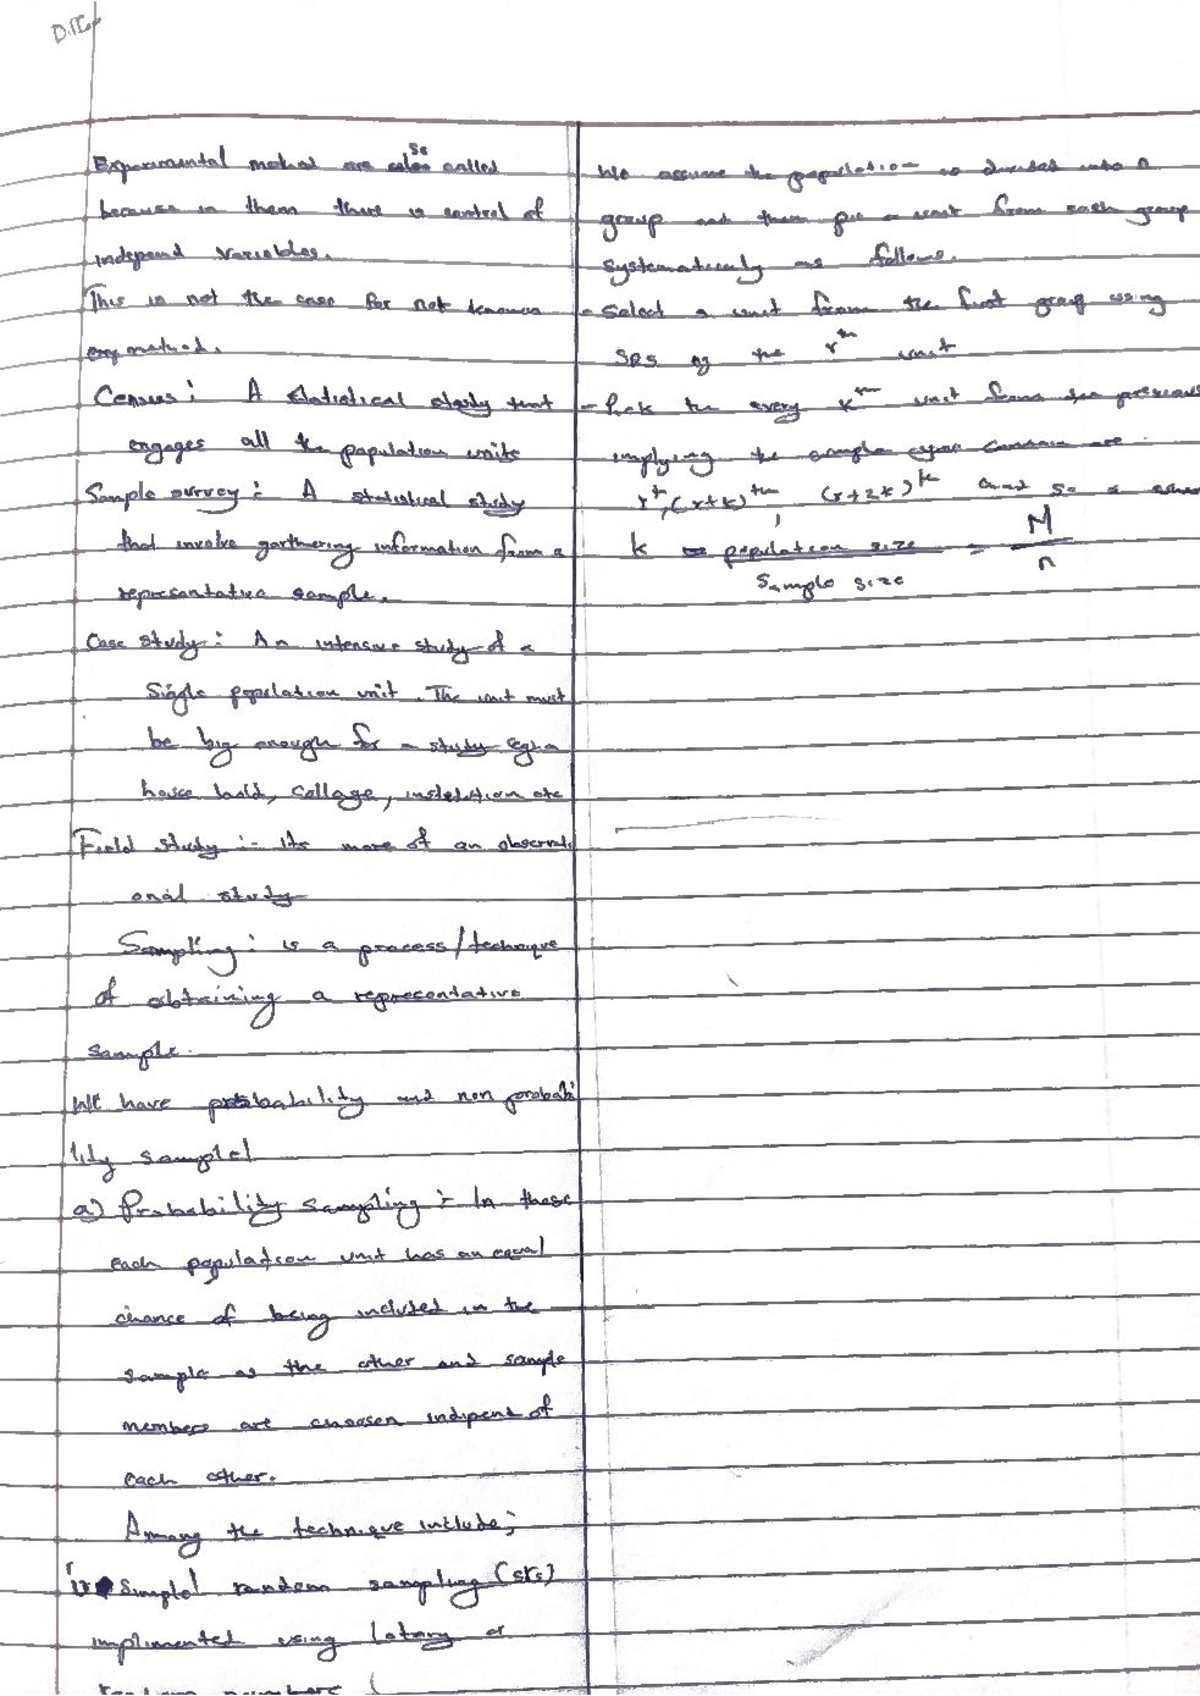 Experimental method are so called
because in them there is control of
independ variables.
This is not the case for not known
method.
Census: A statistical study that
engages all the population units
Sample survey: A statistical study
that involve garthering information from a
representative sample.
Case study: An intensive study of a
Single population unit. The unit must
be big enough for a study eg. a
house hold, collage, institution etc
Field study:- Its more of an observati
onal study
Sampling: is a process/technique
of obtaining a representative
sample.
We have probability and non probabi
lity sample
a) Probability sampling:- In these
each population unit has an equal
chance of being included in the
sample as the other and sample
members are choosen indipent of
each other.
Among the technique include;
Simple random sampling (srs)
implimented using lotary or
random numbers
We assume the population is divided into n
group and then pic a unit from each group
systematically as follows.
- Select a unit from the first group using
SRS eg the rth unit
- Pick the every kth unit from the previous
implying the sample
rth, (r+k)th, (r+2k)th and so
k = population size / Sample size = M / n